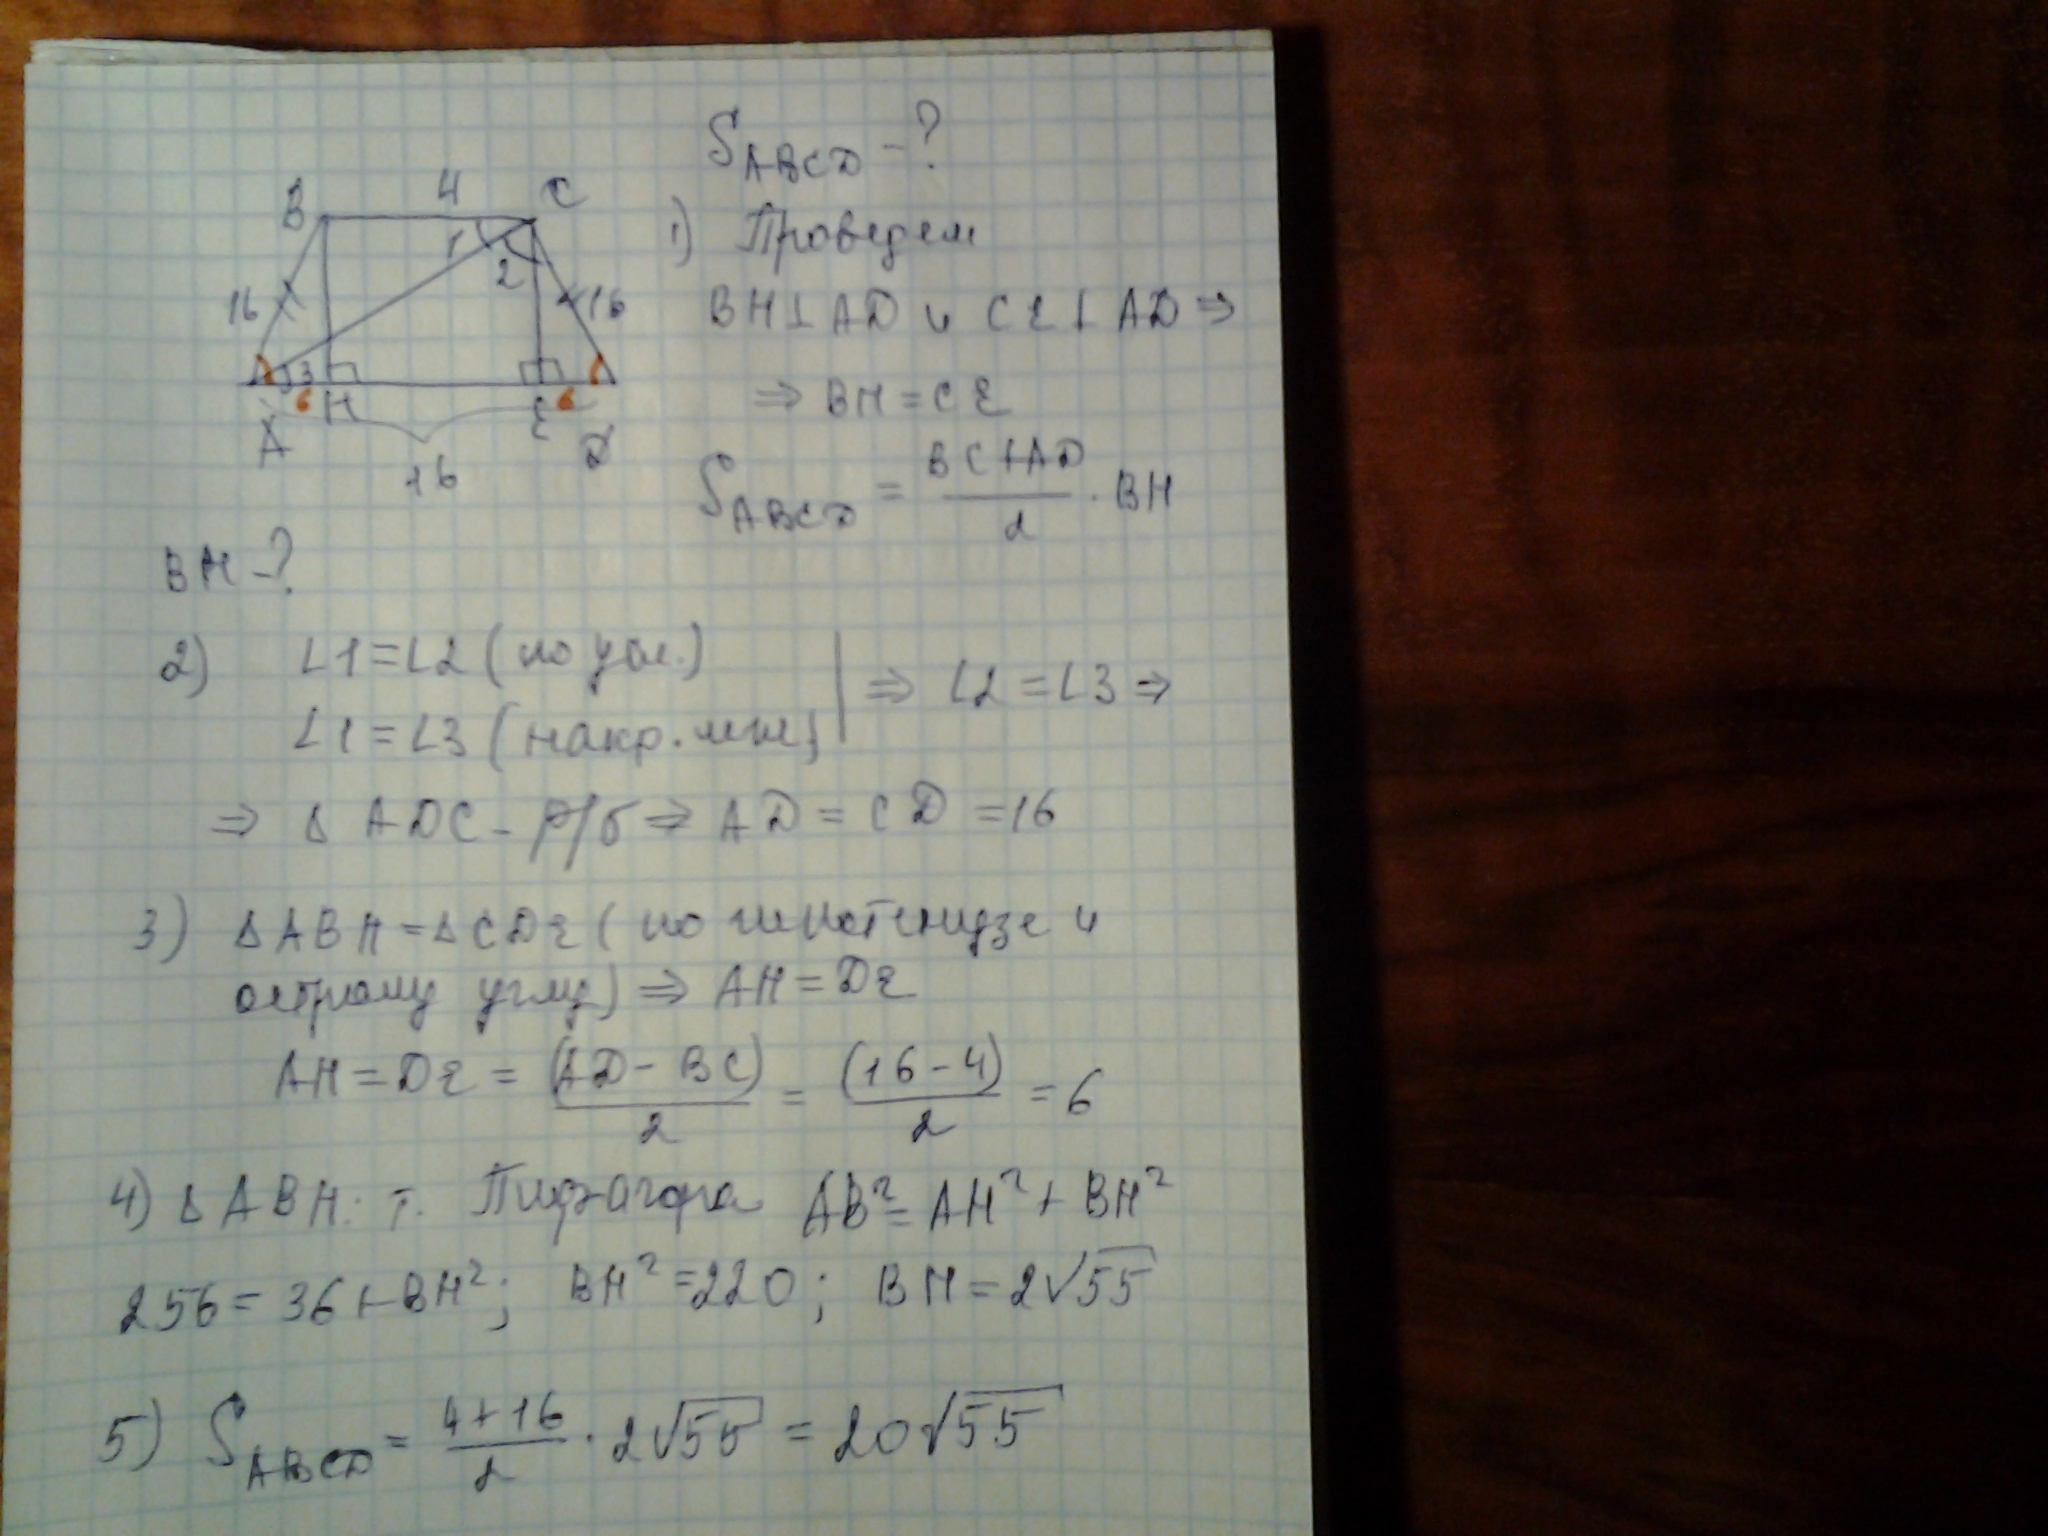 S_ABCD - ?
B 4 C
1
2
16
16
3
6 H E 6
A D
16
1) Проведем
BH ⊥ AD и CE ⊥ AD ⇒
⇒ BH = CE
S_ABCD = (BC + AD)/2 · BH
BH - ?
2) ∠1 = ∠2 (по усл.)
∠1 = ∠3 (накр. леж.) | ⇒ ∠2 = ∠3 ⇒
⇒ Δ ADC - р/б ⇒ AD = CD = 16
3) Δ ABH = Δ CDE (по гипотенузе и
острому углу) ⇒ AH = DE
AH = DE = (AD - BC)/2 = (16 - 4)/2 = 6
4) Δ ABH: т. Пифагора AB² = AH² + BH²
256 = 36 + BH²; BH² = 220; BH = 2√55
5) S_ABCD = (4 + 16)/2 · 2√55 = 20√55